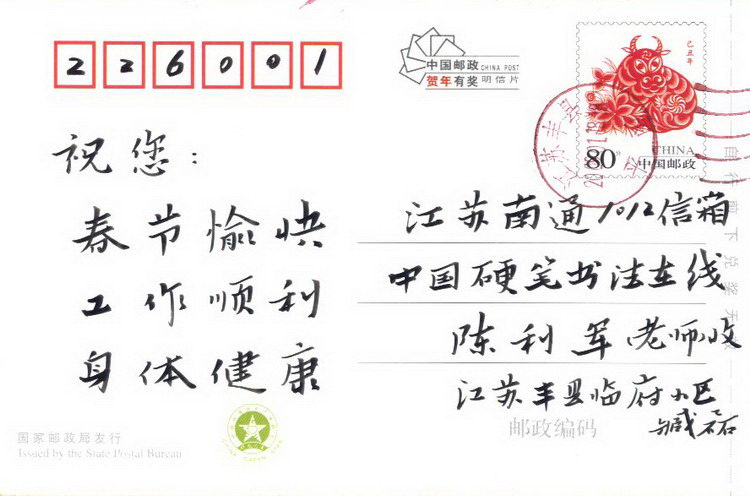 226001
中国邮政 CHINA POST
贺年有奖 明信片
己丑年
80分
CHINA
中国邮政
江苏丰
祝您：
春节愉快
工作顺利
身体健康
江苏南通1012信箱
中国硬笔书法在线
陈利军老师收
江苏丰县临府小区
臧磊
邮政编码
国家邮政局发行
Issued by the State Postal Bureau
自行剪下兑奖无